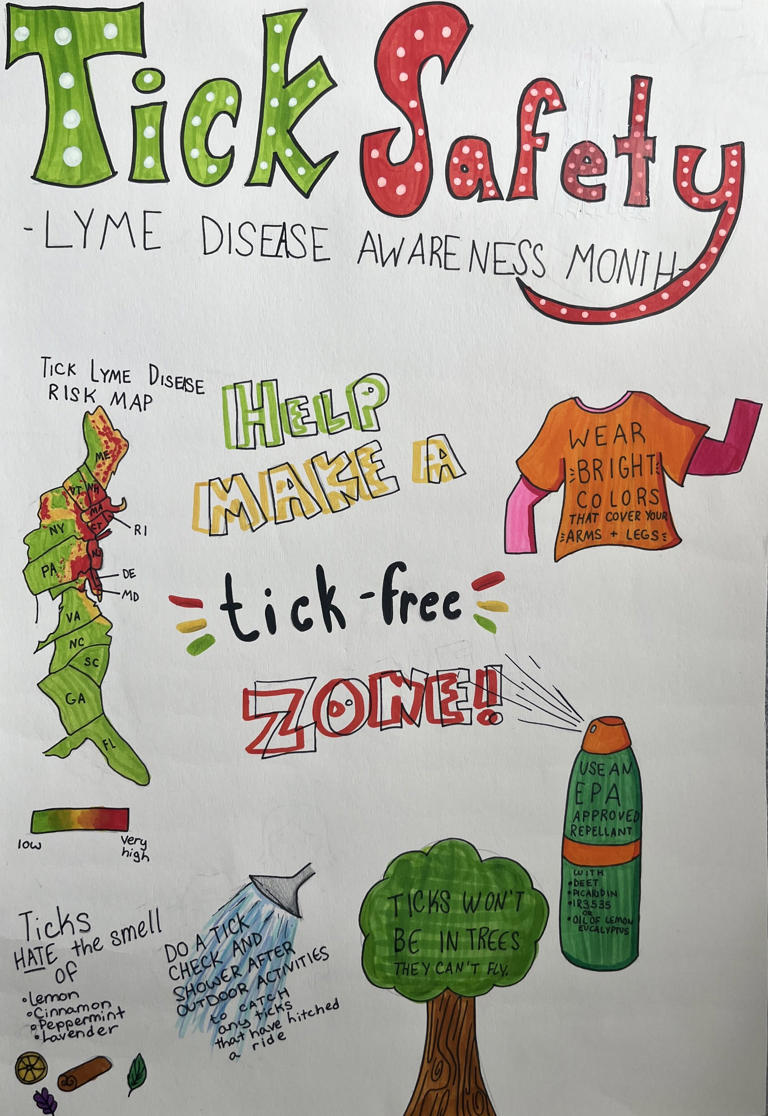 Tick Safety
-LYME DISEASE AWARENESS MONTH-
TICK LYME DISEASE
RISK MAP
ME
VT
NH
MA
NY
CT
RI
PA
NJ
DE
MD
VA
NC
SC
GA
FL
low
very
high
HELP
MAKE A
tick-free
ZONE!
WEAR
BRIGHT
COLORS
THAT COVER YOUR
ARMS + LEGS
USE AN
EPA
APPROVED
REPELLANT
WITH
•DEET
•PICARIDIN
•IR3535
OR
•OIL OF LEMON
EUCALYPTUS
Ticks
HATE the smell
of
•Lemon
•Cinnamon
•Peppermint
•Lavender
DO A TICK
CHECK AND
SHOWER AFTER
OUTDOOR ACTIVITIES
to CATCH
any ticks
that have hitched
a ride
TICKS WON'T
BE IN TREES
THEY CAN'T FLY.